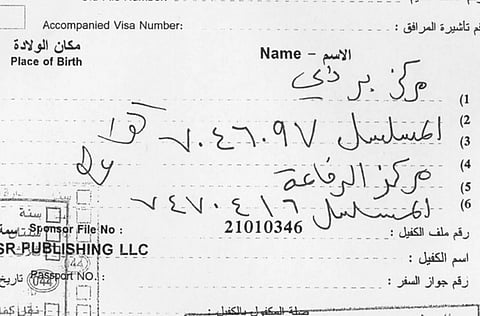 Accompanied Visa Number:
رقم تأشيرة المرافق :
مكان الولادة
Place of Birth
Name - الاسم
مركز بر دبي
(1
(2
المسلسل ٧٠٤٦٠٩٧
(3
(4
مركز الرفاعة
(5
المسلسل ٧٤٧٠٤١٦
(6
Sponsor File No :
21010346
رقم ملف الكفيل :
SR PUBLISHING LLC
اسم الكفيل :
Passport NO. :
رقم جواز السفر :
044
سنة
تاريخ
صلة المكفول بالكفيل :